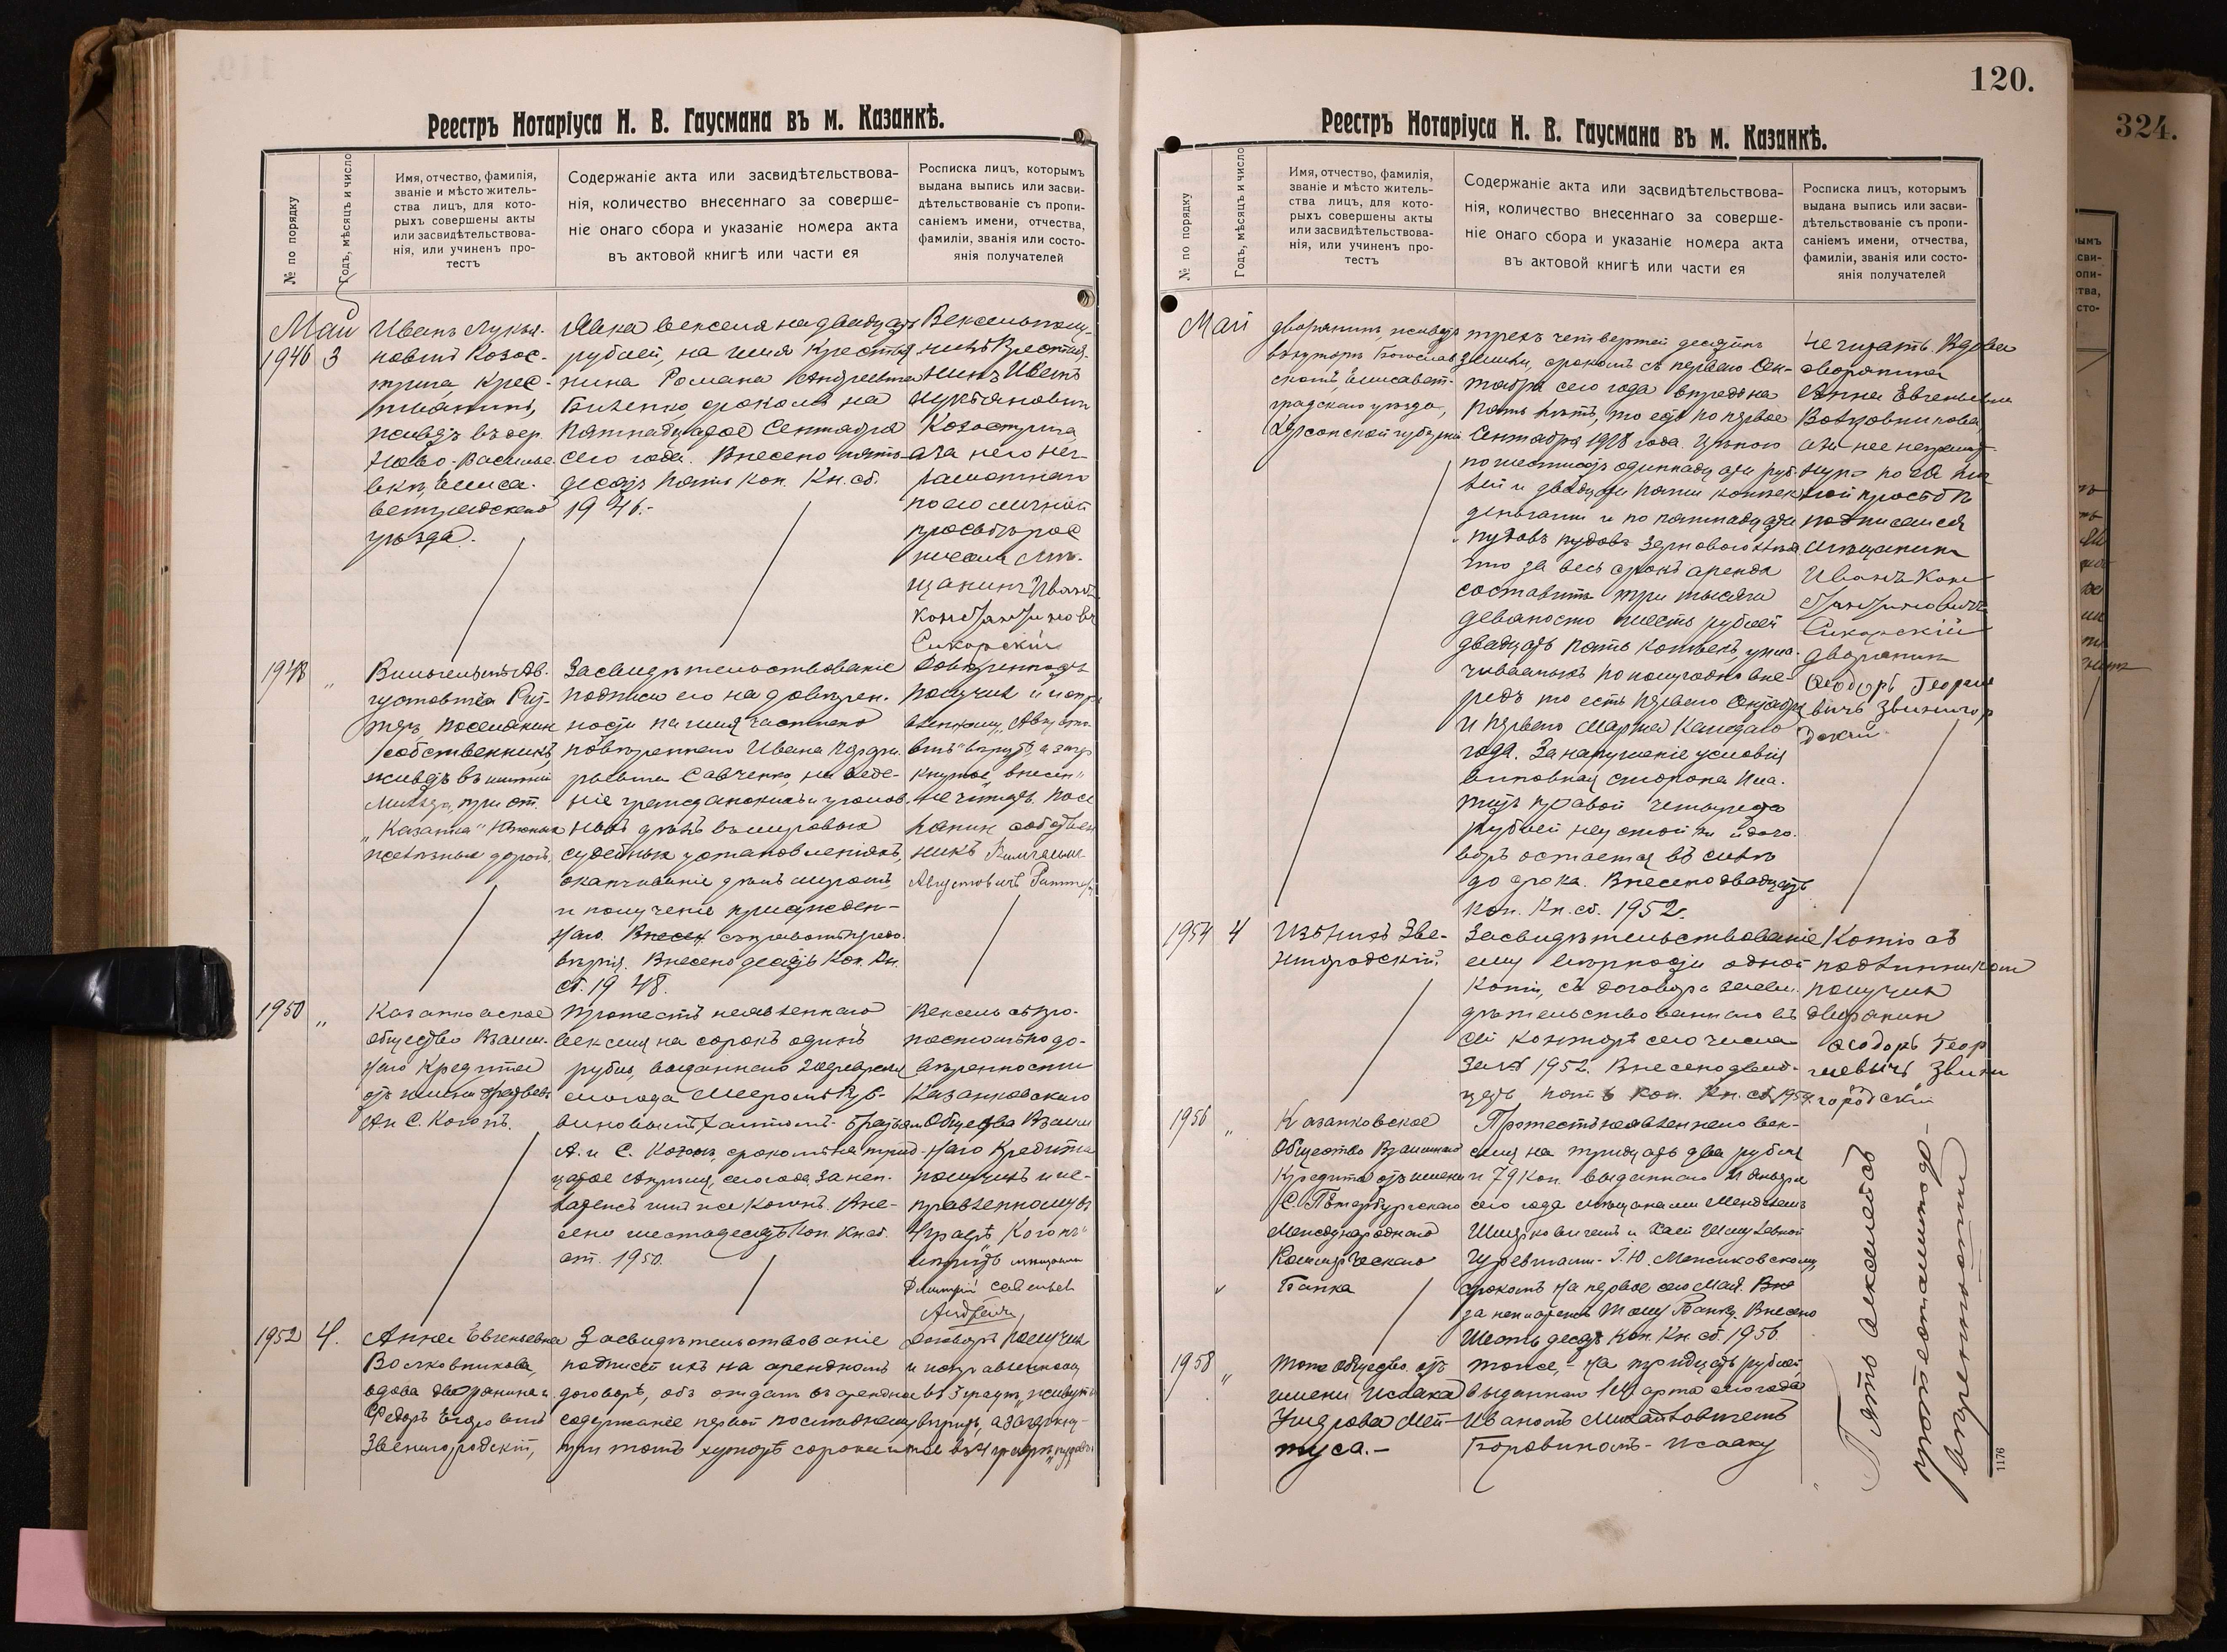 Реестръ Нотаріуса Н. В. Гаусмана въ м. Казанкѣ.
№ по порядку
Годъ, мѣсяцъ и число
Имя, отчество, фамилія,
званіе и мѣсто житель-
ства лицъ, для кото-
рыхъ совершены акты
или засвидѣтельствова-
нія, или учиненъ про-
тестъ
Содержаніе акта или засвидѣтельствова-
нія, количество внесеннаго за соверше-
ніе онаго сбора и указаніе номера акта
въ актовой книгѣ или части ея
Росписка лицъ, которымъ
выдана выпись или засви-
дѣтельствованіе съ пропи-
саніемъ имени, отчества,
фамиліи, званія или состо-
янія получателей
Май
1946 3
Иванъ Лукья-
новичъ Козос-
трига, крес-
тьянинъ,
живущ. въ дер.
Ново-Василье-
вкѣ, Елиса-
ветградскаго
уѣзда.
Явка векселя на двадцать
рублей, на имя крестья
нина Романа Андреевича
срокомъ на
пятнадцатое Сентября
сего года. Внесено пять-
десятъ пять коп. Кн. сб.
1946.-
Вексель полу-
чилъ Крестья-
нинъ Иванъ
Лукьяновичъ
Козострига,
а за него нег-
рамотнаго
по его личной
просьбѣ рос
писался Мѣ-
щанинъ Иванъ
Константинович
Сикорскій
1948 "
Вильгельмъ Ав-
густовичъ Рит-
теръ, поселянинъ
собственникъ,
живущ. въ имѣніи
при ст.
„Казанка" Южныхъ
желѣзныхъ дорогъ.
Засвидѣтельствованіе
подписи его на довѣрен-
ности на имя частнаго
повѣреннаго Ивана
Савченко, на веде-
ніе гражданскихъ и уголов-
ныхъ дѣлъ въ мировыхъ
судебныхъ установленіяхъ,
окончаніе дѣлъ миромъ,
и полученіе присужден-
наго. Внесен съ правомъ передо-
вѣрія. Внесено десять коп. Кн.
сб. 1948.
Довѣренность
получилъ и испра
вленному „Августо-
вичъ" вѣрить, а зачер
кнутое „внесен"
не читать. Посе
лянинъ собствен
никъ Вильгельмъ
Августовичъ Риттеръ
1950 "
Казанковское
общество Взаим-
наго Кредита
отъ имени
А. и С. Когонъ.
Протестъ неявленнаго
векселя на сорокъ одинъ
рубль, выданнаго 2 Февраля
сего года Мееромъ Ру-
биновымъ - братьямъ
А. и С. Когонъ, срокомъ на трид-
цатое Апрѣля, сего года, за неп-
латежъ имъ же Когонъ. Вне-
сено шестьдесятъ коп. Кн. сб.
ст. 1950.
Вексель съ про-
тестомъ по до-
вѣренности
Казанковскаго
Общества Взаим
наго Кредита
получилъ и ис-
правленному въ
4 графѣ „Когонъ"
вѣрить мѣщанин
Дмитрій Савельев
1952 4.
Анна Евгеньевна
Волковникова,
вдова дворянина и
Федоръ Егоровичъ
Звенигородскій,
Засвидѣтельствованіе
подписей ихъ на арендномъ
договорѣ, объ отдачѣ въ арендное
содержаніе первой послѣднему
при томъ хуторѣ сорока и
Договоръ получилъ
и исправленному
въ 3 графѣ „живущ"
вѣрить, а зачеркну-
тое въ 4 графѣ „пудовъ"
120.
Реестръ Нотаріуса Н. В. Гаусмана въ м. Казанкѣ.
№ по порядку
Годъ, мѣсяцъ и число
Имя, отчество, фамилія,
званіе и мѣсто житель-
ства лицъ, для кото-
рыхъ совершены акты
или засвидѣтельствова-
нія, или учиненъ про-
тестъ
Содержаніе акта или засвидѣтельствова-
нія, количество внесеннаго за соверше-
ніе онаго сбора и указаніе номера акта
въ актовой книгѣ или части ея
Росписка лицъ, которымъ
выдана выпись или засви-
дѣтельствованіе съ пропи-
саніемъ имени, отчества,
фамиліи, званія или состо-
янія получателей
Май
дворянинъ, живущ.
въ хуторѣ Богослав
скомъ, Елисавет-
градскаго уѣзда,
Херсонской губерніи
трехъ четвертей десятинъ
земли, срокомъ съ перваго Сен-
тября сего года впредь на
пять лѣтъ, то есть по первое
Сентября 1918 года. Цѣною
по шестисотъ одиннадцати руб-
лей и двадцати пяти копѣекъ
деньгами и по пятнадцати
пудовъ пудовъ зернового хлѣба
что за весь срокъ аренды
составитъ три тысячи
девяносто шесть рублей
двадцать пять копѣекъ, упла-
чиваемыхъ по полугодно впе-
редъ то есть перваго Сентября
и перваго Марта каждаго
года. За нарушеніе условія
виновная сторона пла-
титъ правой четыреста
рублей неустойки и дого-
воръ остается въ силѣ
до срока. Внесено двадцать
коп. Кн. сб. 1952.
не читать. Вдова
дворянина
Анна Евгеньевна
Волковникова
а за нее неграмот-
ную по ея лич
ной просьбѣ
подписался
мѣщанинъ
Иванъ Кон
стантиновичъ
Сикорскій
дворянинъ
Ѳеодоръ Георгіе
вичъ Звениго
родскій
1954 4
Изъ нихъ Зве-
нигородскій.
Засвидѣтельствованіе
ему вѣрности одной
копіи, съ договора засви-
дѣтельствованнаго въ
сей конторѣ сего числа
за № 1952. Внесено двад-
цать пять коп. Кн. сб. 1954.
Копію съ
подлинникомъ
получилъ
дворянинъ
Ѳеодоръ Геор
гіевичъ Звени
городскій
1956 "
Казанковское
Общество Взаимнаго
Кредита отъ имени
С. Петербургскаго
Международнаго
Коммерческаго
Банка
Протестъ неявленнаго век-
селя на тридцать два рубля
и 79 коп. выданнаго 11 Января
сего года мѣщанами Менделемъ
и Хаей
Гуревичами - Г. Ю. Менчиковскому,
срокомъ на первое сего Мая. Вне
за неплатежъ тому Банку. Внесено
Шестьдесятъ коп. Кн. сб. 1956.
1958 "
Тоже Общество отъ
имени Исаака
туса.-
тоже, - на тридцать рублей,
выданнаго 1 Марта сего года
Иваномъ Михайловичемъ
Боровикомъ - Исааку
Пять векселей съ
протестами по до-
вѣренности
1176
324.